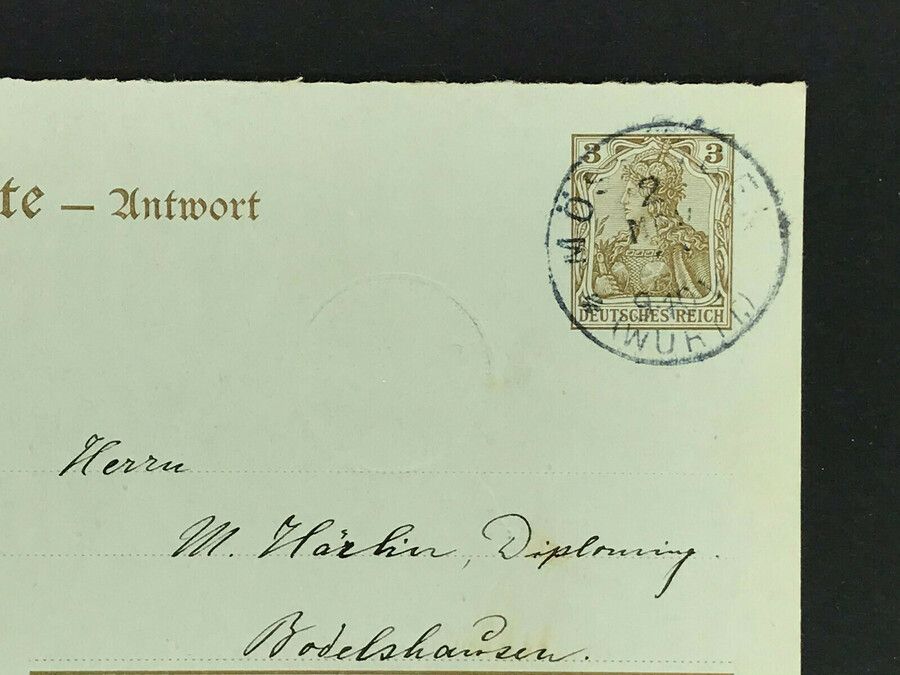 te – Antwort
3 3
DEUTSCHES REICH
2
(WÜRTT.)
Herrn
M. Härlin, Diploming.
Bodelshausen.